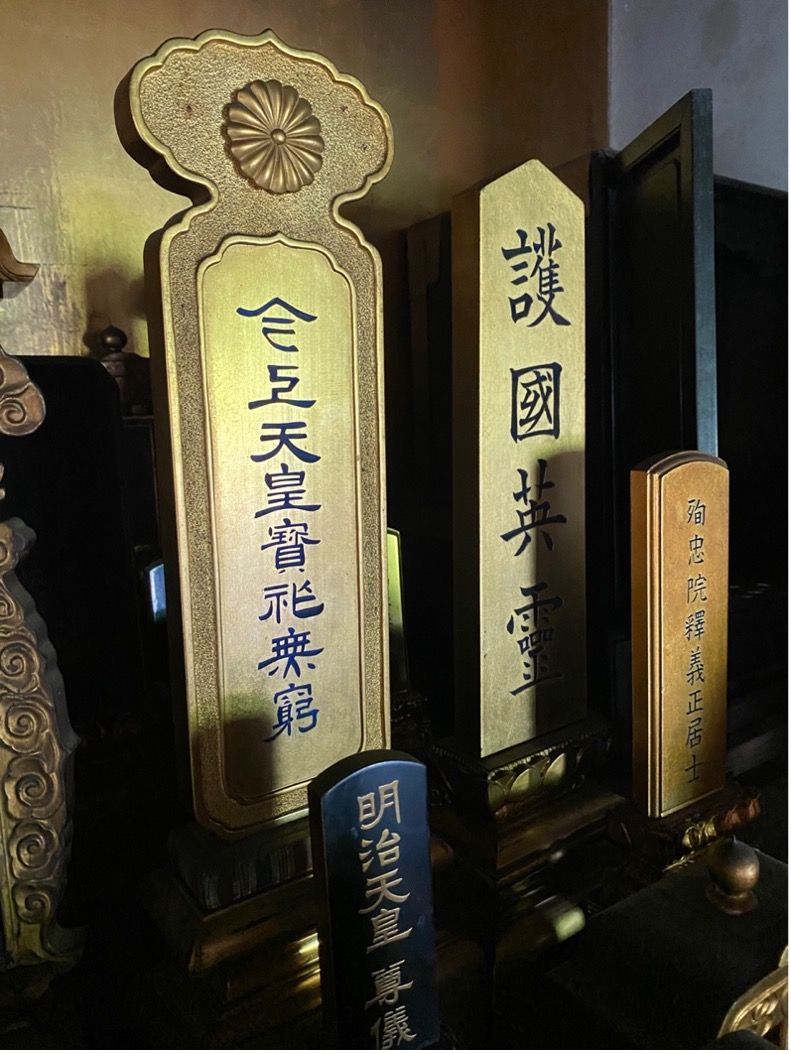 殉忠院釋義正居士
護國英靈
明治天皇 尊儀
今上天皇寶祚無窮